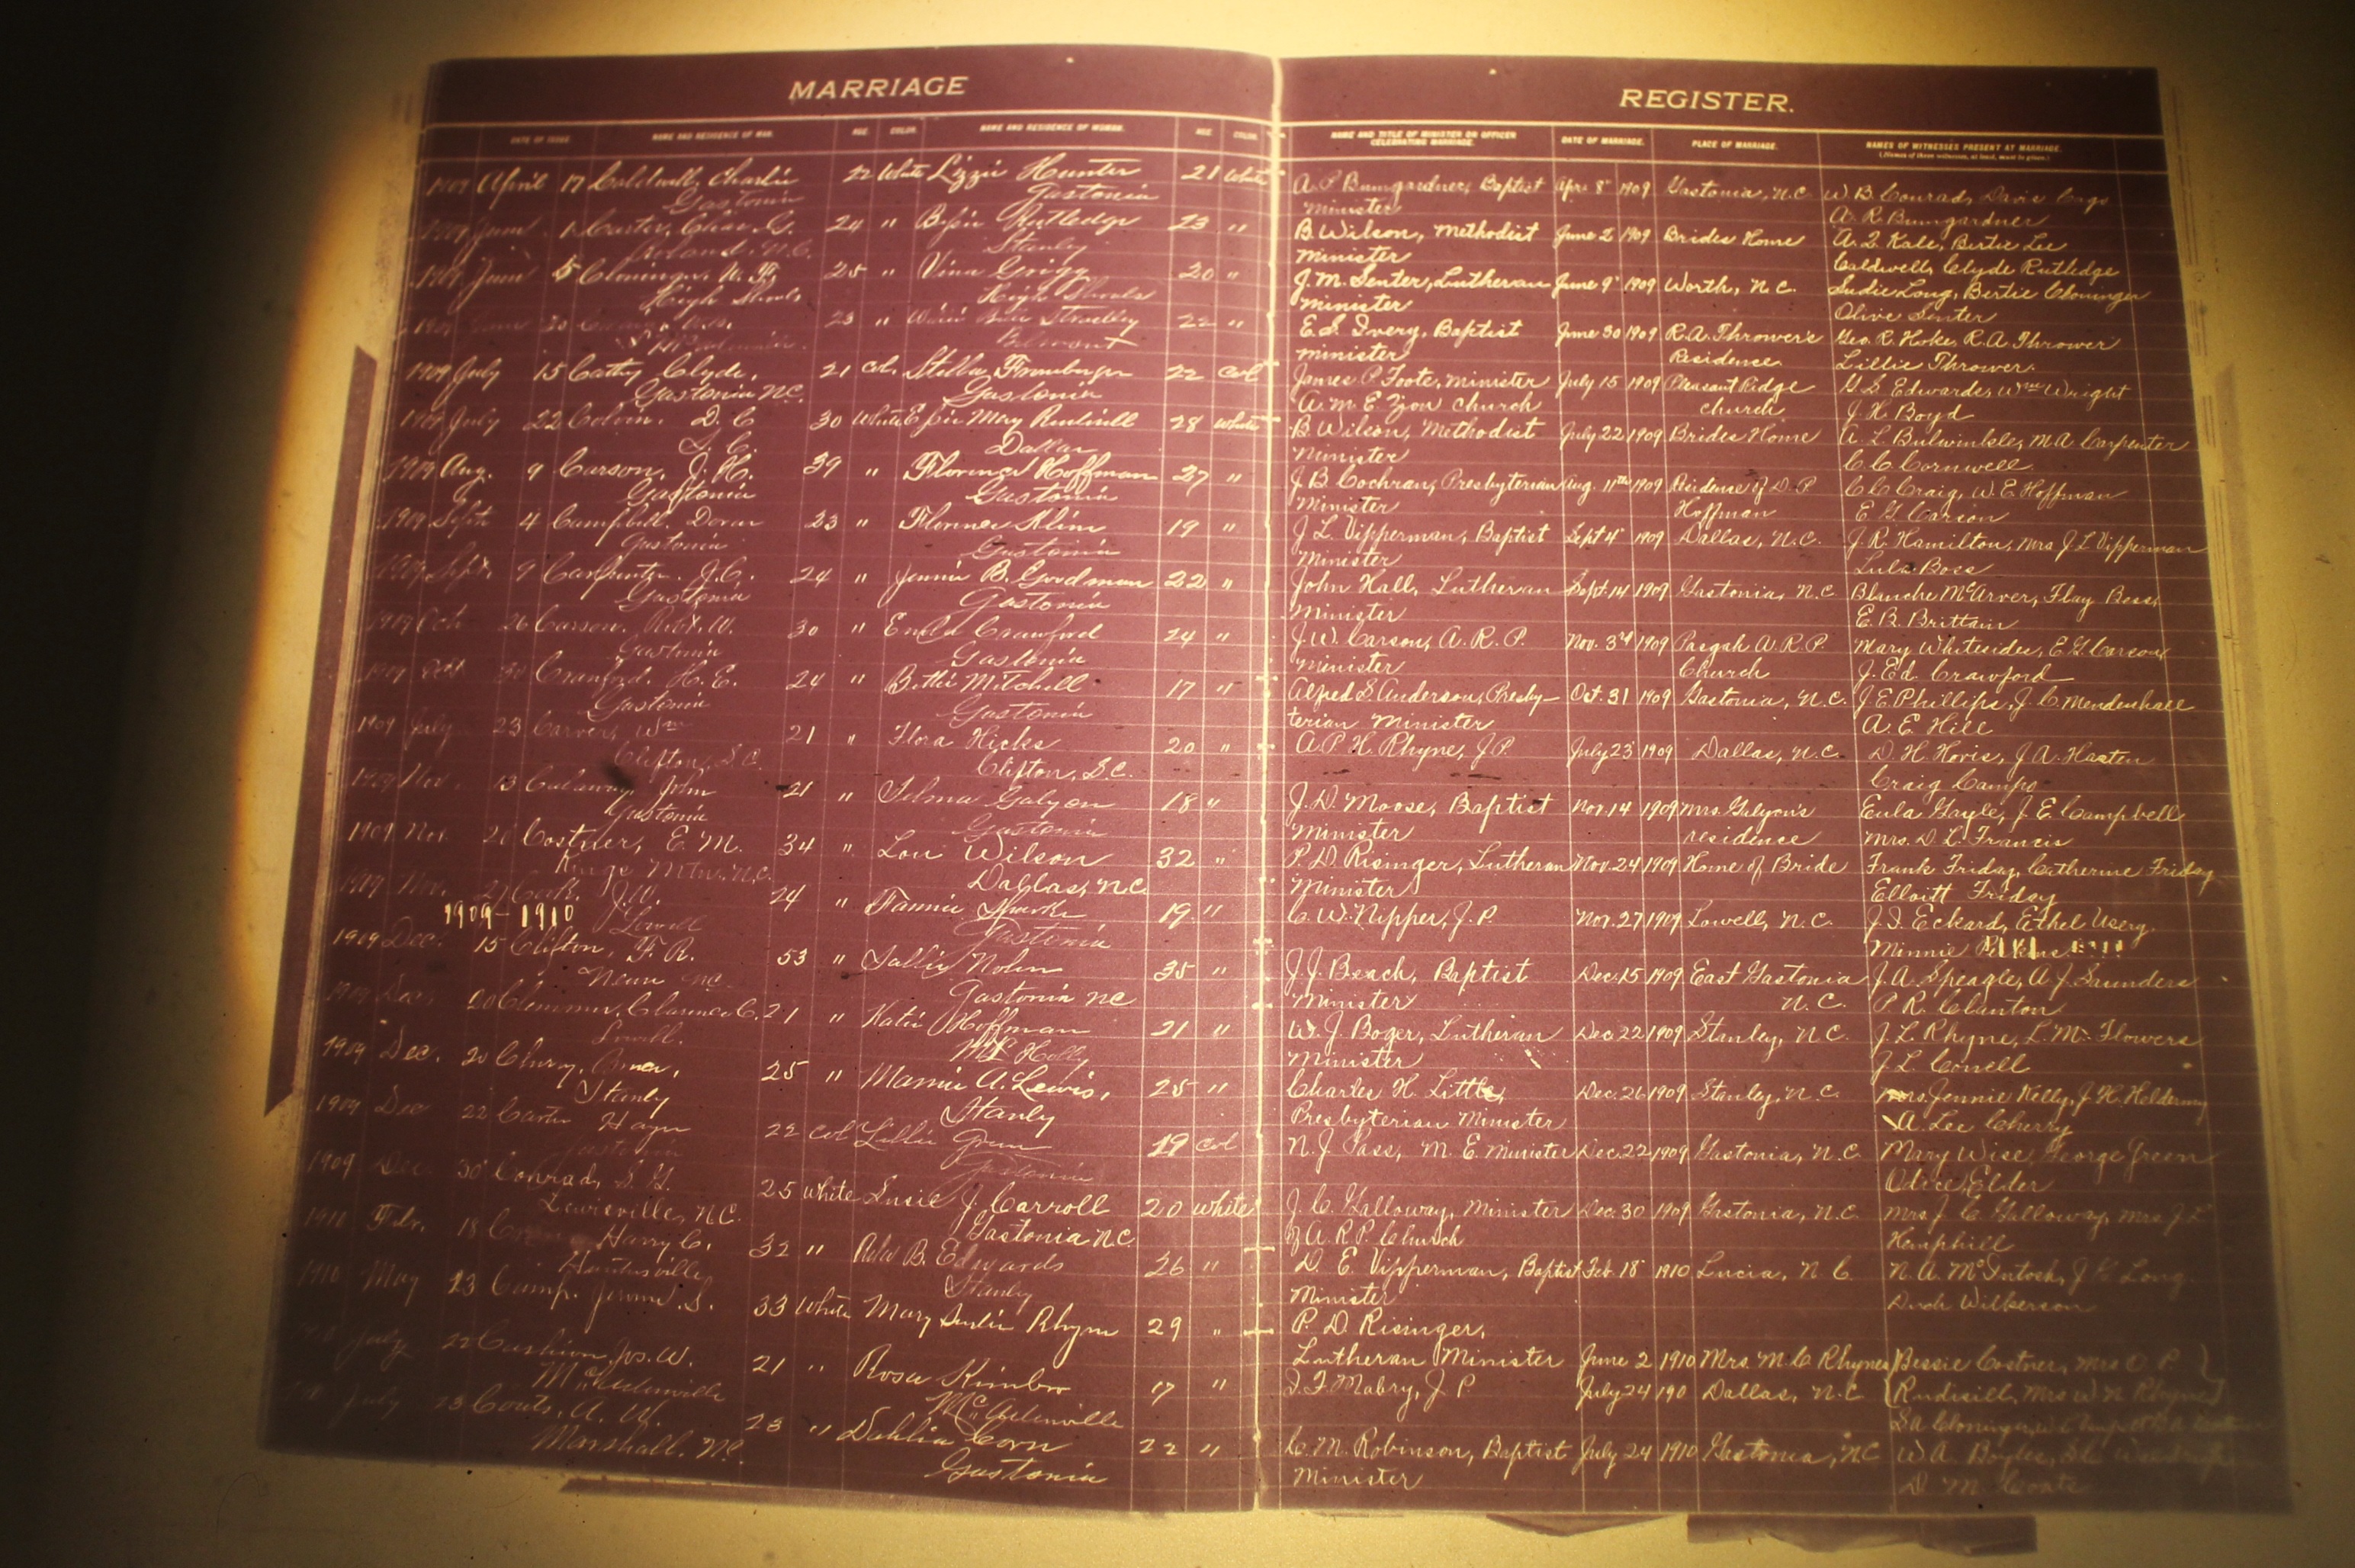 MARRIAGE
REGISTER.
DATE OF ISSUE. NAME AND RESIDENCE OF MAN. AGE COLOR. NAME AND RESIDENCE OF WOMAN. AGE COLOR.
NAME AND TITLE OF MINISTER OR OFFICER CELEBRATING MARRIAGE. DATE OF MARRIAGE. PLACE OF MARRIAGE. NAMES OF WITNESSES PRESENT AT MARRIAGE.
(Names of three witnesses, at least, must be given.)
1909 April 17 Caldwell, Charlie 22 White Lizzie Hunter 21 White
Gastonia Gastonia
1909 June 1 Carter, Chas. G. 24 " Rutledge 23 "
N.C. Stanly
1909 June 5 Cloninger, 25 " Vina Grigg 20 "
High Shoals High Shoals
30 23 " 22 "
Belmont
1909 July 15 Cathy Clyde, 21 col. Stella Froneberger 22 col
Gastonia N.C. Gastonia
1909 July 22 D. C 30 White Effie May Rudisill 28 White
S. C. Dallas
1909 Aug. 9 Carson, J. H. 39 " Florence Hoffman 27 "
Gastonia Gastonia
1909 Sept 4 Campbell, 23 " Florence Kline 19 "
Gastonia Gastonia
1909 Sept. 9 Carpenter. J.C. 24 " Jennie B. Goodman 22 "
Gastonia Gastonia
1909 Oct 26 Carson. Robt. W. 30 " Crawford 24 "
Gastonia Gastonia
1909 Oct 30 Cranford. H. E. 24 " Bettie Mitchell 17 "
Gastonia Gastonia
1909 July 23 Carver, Wm 21 " Flora Hicks 20 "
Clifton, S.C. Clifton, S.C.
1909 Nov. 13 John 21 " Selma Galyon 18 "
Gastonia Gastonia
1909 Nov. Costner, E. M. 34 " Lou Wilson 32 "
Kings Mtn. N.C. Dallas, N.C.
1909 Nov. 27 J.W. 24 " Fannie 19 "
1909-1910
Lowell Gastonia
1909 Dec. 15 Clifton, F. R. 53 " Sallie Nolen 35 "
N.C. Gastonia N.C
1909 Dec. 20 Clemmer, Clarence C. 21 " Katie Hoffman 21 "
Lowell. Mt Holly
1909 Dec. 20 25 " Mamie A. Lewis, 25 "
Stanly Stanly
1909 Dec 22 Carter 22 col Lillie 19 col
Gastonia Gastonia
1909 Dec 30 Conrad, S. G. 25 White Susie J. Carroll 20 White
Lewisville, N.C. Gastonia N.C.
1910 Feb. 18 Harry C. 32 " B. Edwards 26 "
Huntersville Stanly
1910 May 23 Camp. Jerome S. 33 White Mary Rhyne 29 "
July 22 Cushion, Jos. W. 21 " Rosa Kimbro 17 "
McAdenville McAdenville
July 23 Couts, A. W. 23 " Dahlia Corn 22 "
Marshall. N.C. Gastonia
A. P. Bumgardner, Baptist Apr. 8 1909 Gastonia, N.C W. B. Conrad, Davis
Minister A. R. Bumgardner
B. Wilson, Methodist June 2 1909 Brides Home A. Q. Kale, Bertie Lee
Minister Caldwell, Clyde Rutledge
J. M. Senter, Lutheran June 9 1909 Worth, N.C. Sudie Long, Bertie Cloninger
Minister Olive Senter
E. S. Ivery, Baptist June 30 1909 R.A. Thrower's Geo. R. Hoke, R.A. Thrower
Minister Residence Lillie Thrower.
James P. Foote, Minister July 15 1909 Pleasant Ridge G. S. Edwards, Wm Wright
A. M. E. Zion Church church J. H. Boyd
B. Wilson, Methodist July 22 1909 Brides Home A. L. Bulwinkle, M A Carpenter
Minister C. C. Cornwell.
J. B. Cochran, Presbyterian Aug. 11th 1909 Residence of D. P. C. C. Craig, W. E. Hoffman
Minister Hoffman E. G. Carson
J. L. Vipperman, Baptist Sept 4 1909 Dallas, N.C. J. R. Hamilton, Mrs J L Vipperman
Minister Lula Boss
John Hall, Lutheran Sept. 14 1909 Gastonia, N.C Blanche McArver, Flay Bess,
Minister E. B. Brittain
J. W. Carson, A. R. P. Nov. 3rd 1909 Pasgah A.R.P. Mary Whitesides, E. G. Carson,
Minister Church J. Ed. Crawford
Alfred S. Anderson, Presby- Oct. 31 1909 Gastonia, N.C. J. E. Phillips, J. C. Mendenhall
terian Minister A. E. Hill
A. P. H. Rhyne, J. P. July 23 1909 Dallas, N.C. D. H. Hovis, J. A. Hasten
Craig Campo
J. D. Moose, Baptist Nov. 14 1909 Mrs. Galyon's Eula Gayle, J. E. Campbell
Minister residence Mrs. D. L. Francis
P. D. Risinger, Lutheran Nov. 24 1909 Home of Bride Frank Friday, Catherine Friday
Minister Elloitt Friday
C. W. Nipper, J. P. Nov. 27 1909 Lowell, N.C. J. I. Eckard, Ethel Userg.
Minnie
J. J. Beach, Baptist Dec. 15 1909 East Gastonia J. A. Speagle, A. J. Saunders
Minister N. C. P. R. Clanton
W. J. Boger, Lutheran Dec 22 1909 Stanley, N.C. J. L. Rhyne, L. M. Flowers
Minister J. L. Conell
Charles H. Little, Dec. 26 1909 Stanley, N.C. Mrs. Jennie Kelly, J. H.
Presbyterian Minister A. Lee Cherry
N. J. Pass, M. E. Minister Dec. 22 1909 Gastonia, N.C. Mary Wise, George Green
Elder
J. C. Galloway, Minister Dec. 30 1909 Gastonia, N.C. Mrs J. C. Galloway, Mrs J L
of A. R. P. Church Hemphill
D. E. Vipperman, Baptist Feb. 18 1910 Lucia, N. C. N. A. McIntosh, J H Long.
Minister Wilkerson
P. D. Risinger,
Lutheran Minister June 2 1910 Mrs. M. C Rhynes Bessie Costner, Mrs O. P.
I. F. Mabry, J P July 24 190 Dallas, N.C Rudisill, Mrs W. N. Rhyne
S A Cloninger,
C. M. Robinson, Baptist July 24 1910 Gastonia, N.C W A
Minister D M Coats